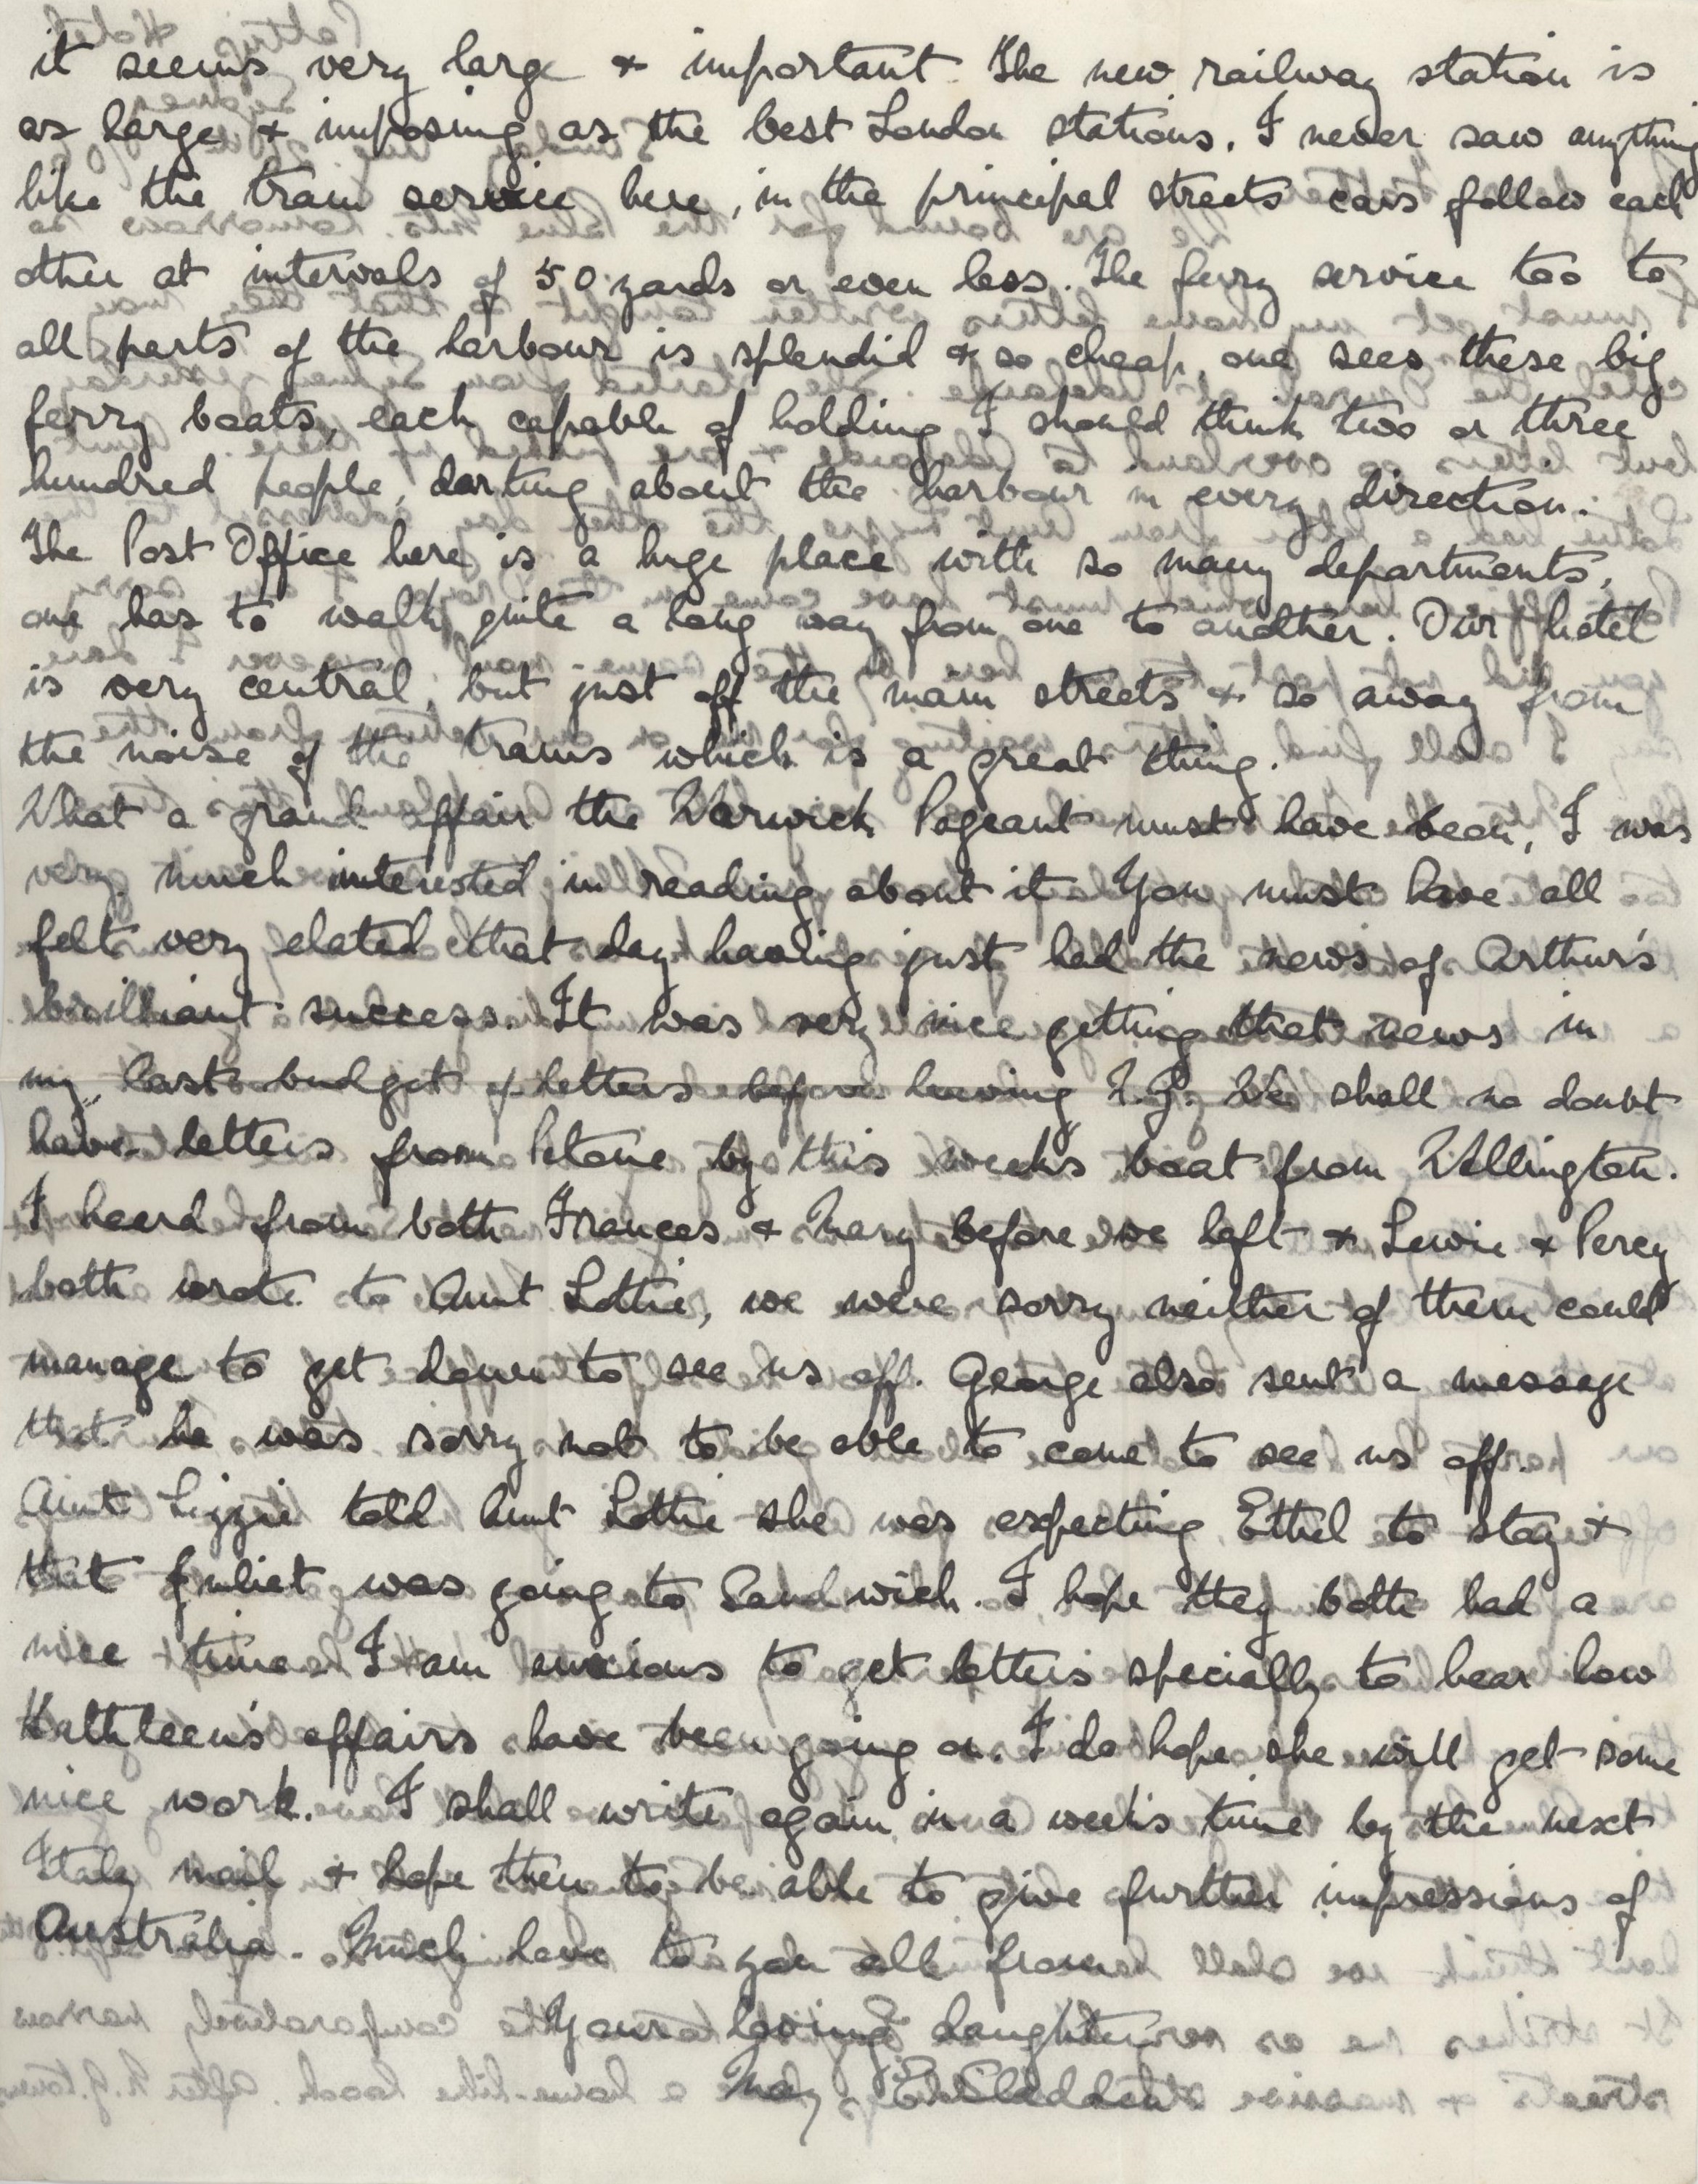 it seems very large & important. The new railway station is
as large & imposing as the best London stations. I never saw anything
like the tram service here, in the principal streets cars follow each
other at intervals of 50 yards or even less. The ferry service too to
all parts of the harbour is splendid & so cheap, one sees these big
ferry boats, each capable of holding I should think two or three
hundred people, darting about the harbour in every direction.
The Post Office here is a huge place with so many departments,
one has to walk quite a long way from one to another. Our hotel
is very central, but just off the main streets & so away from
the noise of the trams which is a great thing.
What a grand affair the Warwick Pageant must have been, I was
very much interested in reading about it. You must have all
felt very elated that day having just had the news of Arthur's
brilliant success. It was very nice getting that news in
my last budget of letters before leaving N.Z. We shall no doubt
have letters from Petone by this week's boat from Wellington.
I heard from both Frances & Mary before we left & Lewie & Percy
both wrote to Aunt Lottie, we were sorry neither of them could
manage to get down to see us off. George also sent a message
that he was sorry not to be able to come to see us off.
Aunt Lizzie told Aunt Lottie she was expecting Ethel to stay &
that Juliet was going to Sandwich. I hope they both had a
nice time. I am anxious to get letters specially to hear how
Kathleen's affairs have been going on. I do hope she will get some
nice work. I shall write again in a week's time by the next
Italy mail & hope then to be able to give further impressions of
Australia. Much love to you all from
Your loving daughter
May E. Sladden